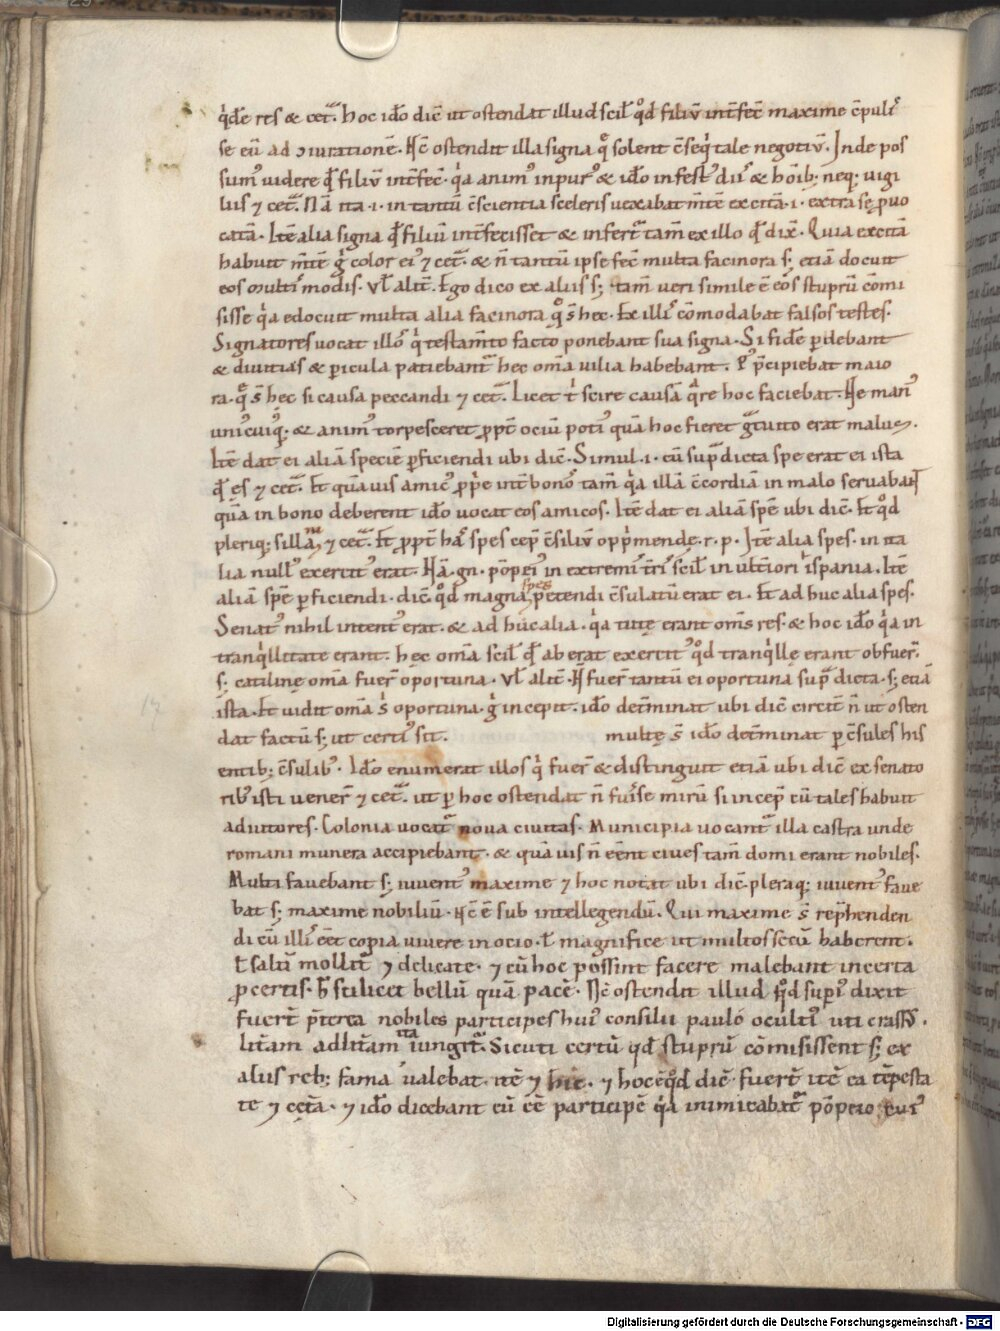 q̓dē res & cet̄. hoc idō dic̄ ut ostendat illud scil̄ qđ filiū int̄fec̄ maxime c̄puliſ
se eū ad ɔiurationē. Hc̄ ostendit illa signa q̄ solent c̄seq̓ tale negotiū. Inde pos
sumꝰ videre qđ filiū int̄fec̄. q̓a animꝰ inpurꝰ & idō infestꝰ diis & hōib; neq; uigi
liis ⁊ cet̄. Nā ita .i. in tantū c̄scientia sceleris uexabat m̄te excitā .i. extra sę ꝓuo
catā. Itē alia signa qđ filiū int̄fecisset & infert̄ tam̄ ex illo qđ dix̄. Quia excitā
habuit m̄te ḡ color eiꝰ ⁊ cet̄. & n̄ tantū ipse fec̄ multa facinora s; etiā docuit
eos multis modis. Vl̄ alit̄. Ego dico ex aliis s; tam̄ ueri simile ē eōs stuprū cōmi
sisse q̓a edocuit multa alia facinora q̄ s̄ hec. Ex illis cōmodabat falsos testes.
Signatores uocat illos q̓ testam̄to facto ponebant sua signa. Si fidē ꝑdebant
& diuitias & ꝑicula patiebant̄ hec om̄a uilia habebant. Pꝰ p̄cipiebat maio
ra. q̄ s̄ hec si causa peccandi ⁊ cet̄. Licet t̓ scire causā q̓re hoc faciebat. Ne manꝰ
uniꝰcuiꝰq;. & animꝰ torpesceret ꝓpt̄ ociū potiꝰ quā hoc fieret g̓tuito erat malus.
Itē dat ei aliā speciē ꝑficiendi ubi dic̄. Simul .i. cū sup̄dicta spe erat ei ista
qđ ęs ⁊ cet̄. Et quāuis amicꝰ ꝓpe int̄ bonos tam̄ q̓a illā c̄cordiā in malo seruabant
quā in bono deberent idō uocat eos amicos. Itē dat ei aliā spē ubi dic̄. Et qđ
pleriq; sillani ⁊ cet̄. Et ꝓpt̄ has spes cep̄ c̄siliū opp̓mendę .r. p. Itē alia spes. in ita
lia nullꝰ exercitꝰ erat. Nā .gn. pōpeiꝰ in extremis t̄ris scil̄ in ult̄iori ispania. Itē
aliā spē ꝑficiendi. dic̄. qđ magna spes petendi c̄sulatū erat ei. Et ad huc alia spes.
Senatꝰ nihil intentꝰ erat. & ad huc alia. q̓a tutę erant om̄s res. & hoc idō q̓a in
tranq̓llitate erant. hęc om̄a scil̄ qđ aberat exercitꝰ qđ tranq̓llę erant obfuer̄.
s; catilinę om̄a fuer̄ oportuna. Vl̄ alit̄. N̄ fuer̄ tantū ei oportuna sup̄dicta. s; etiā
ista. Et uidit om̄a s̄ oportuna. ḡ incepit. idō det̄minat ubi dic̄ circit̄ n̄ ut osten
dat factū s; ut certiꝰ sit. multę s̄ idō det̄minat ꝑ c̄sules his
entib; c̄sulibꝰ. Idō enumerat illos q̓ fuer̄ & distinguit etiā ubi dic̄ ex senato
ribꝰ isti uener̄ ⁊ cet̄. ut ꝑ hoc ostendat n̄ fuisse mirū si incep̄ cū tales habuit
adiutores. Colonia uocat̄ noua ciuitas. Municipia uocant̄ illa castra unde
romani munera accipiebant. & quā uis n̄ eēnt ciues tam̄ domi erant nobiles.
Multi fauebant s; iuuentꝰ maxime ⁊ hoc notat ubi dic̄. pleraq; iuuentꝰ faue
bat s; maxime nobiliū. Hc̄ ē sub intellegendū. Qui maxime s̄ rep̄henden
di cū illis eēt copia uiuere in ocio. ł magnifice ut multos secū haberent.
ł saltī mollit̄ ⁊ delicate. ⁊ cū hoc possint facere malebant incerta
ꝓ certis. h̄ scilicet bellū quā pacē. Hc̄ ostendit illud qđ supiꝰ dixit
fuer̄t p̄terea nobiles participes huiꝰ consilii pauló ocultiꝰ uti crassꝰ.
lit̄am ad lit̄am ita iungit̄. Sicuti certū qđ stuprū cōmisissent s; ex
aliis reb; fama ualebat. itē ⁊ hic. ⁊ hoc ē qđ dic̄. fuer̄t itē ea tēpesta
te ⁊ cęt̄a. ⁊ idō dicebant eū eē participē q̓a inimicabat̄ pōpeio cuiꝰ